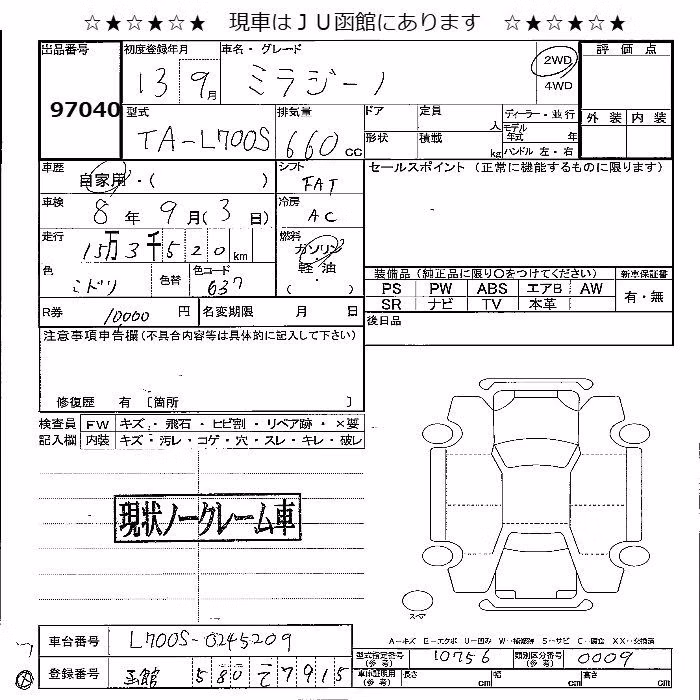 ☆★☆★☆★ 現車はＪＵ函館にあります ☆★☆★☆★
出品番号 97040
初度登録年月 13 9月
車名・グレード ミラジーノ
2WD
4WD
評価点
外装 内装
型式 TA-L700S
排気量 660 cc
ドア 定員 人
形状 積載 kg
ディーラー・並行
モデル年式 年
ハンドル 左・右
車歴 自家用・( )
シフト FAT
セールスポイント (正常に機能するものに限ります)
車検 8年 9月(3日)
冷房 AC
走行 15万3千520km
燃料 ガソリン・軽油・( )
色 ミドリ 色替 色コード 637
装備品 (純正品に限り○をつけてください) 新車保証書
PS PW ABS エアB AW 有・無
SR ナビ TV 本革
R券 10000 円 名変期限 月 日
後日品
注意事項申告欄(不具合内容等は具体的に記入して下さい)
修復歴 有 〔箇所 〕
検査員記入欄
FW キズ・飛石・ヒビ割・リペア跡・×要
内装 キズ・汚レ・コゲ・穴・スレ・キレ・破レ
現状ノークレーム車
スペア
A--キズ E--エクボ U--凹み W--補修跡 S--サビ C--腐食 XX--交換済
車台番号 L700S-0245209
型式指定番号(参考) 10756 類別区分番号(参考) 0009
登録番号 函館 580 て 7915
長さ cm 幅 cm 高さ cm